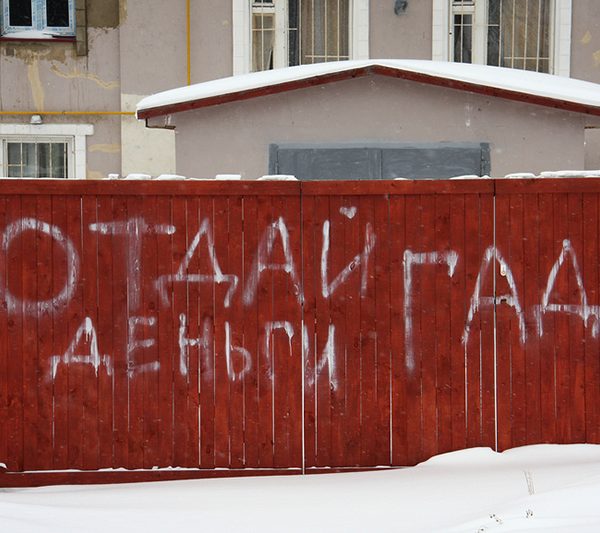 ОТДАЙ ГАД
ДЕНЬГИ